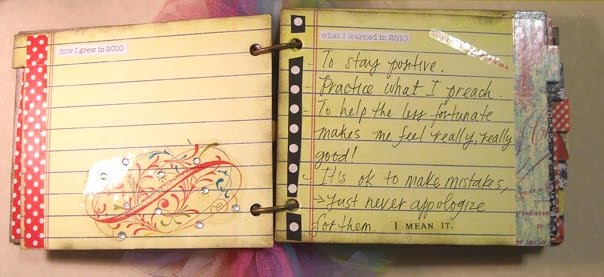 how I grew in 2010
what I learned in 2010
To stay positive.
Practice what I preach.
To help the less fortunate
makes me feel really, really
good!
It's ok to make mistakes,
→ Just never appologize
for them. I MEAN IT.